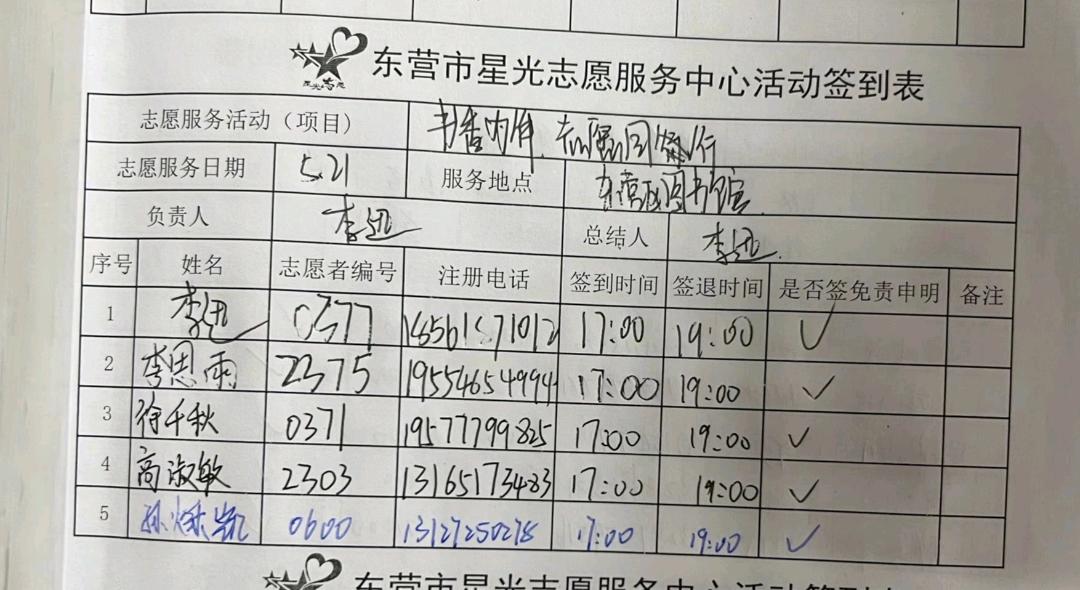 星光志愿
东营市星光志愿服务中心活动签到表
志愿服务活动（项目） 书香为伴，志愿同行
志愿服务日期 5.21 服务地点 东营区图书馆
负责人 李迅 总结人 李迅
序号 姓名 志愿者编号 注册电话 签到时间 签退时间 是否签免责申明 备注
1 李迅 0377 17:00 19:00 ✓
2 李思雨 2375 19554654994 17:00 19:00 ✓
3 徐千秋 0371 19577799825 17:00 19:00 ✓
4 高淑敏 2303 13165173483 17:00 19:00 ✓
5 0600 13127250278 17:00 19:00 ✓
东营市星光志愿服务中心活动签到表